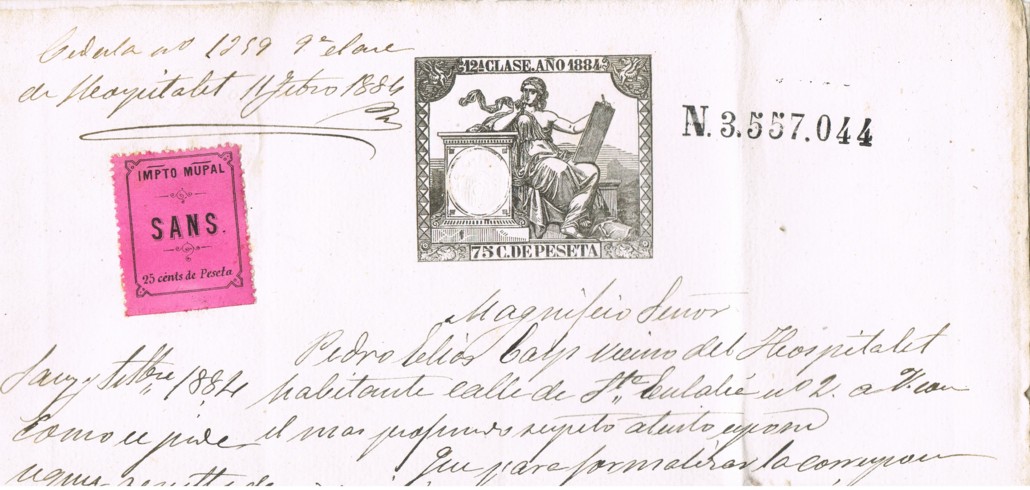 Cedula nº 1259 9ª clase
de Hospitalet 11 Febro 1884
12ª CLASE. AÑO 1884
N. 3.557.044
IMPTO MUPAL
SANS.
25 cents de Peseta
75 C. DE PESETA
Magnifico Señor
Pedro Elias vecino del Hospitalet
habitante calle de Sta Eulalia nº 2. a V. con
el mas profundo respeto atento espone
Que para formalizar la
Sans y 1884
Como se pide